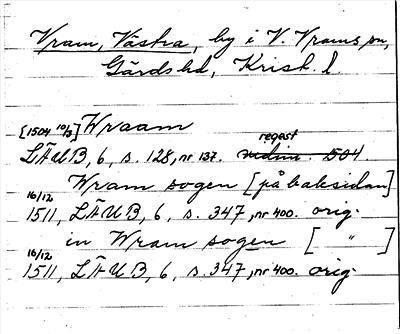 Vram, Västra, by i V. Vrams sn,
Gärds hd, Krist. l.
[1504 10/3] Wraam
LÄUB, 6, s. 128, nr 137. regest vidim. 504.
Wram sogen [på baksidan]
16/12 1511, LÄUB, 6, s. 347, nr 400. orig.
in Wram sogen [ " ]
16/12 1511, LÄUB, 6, s. 347, nr 400. orig.